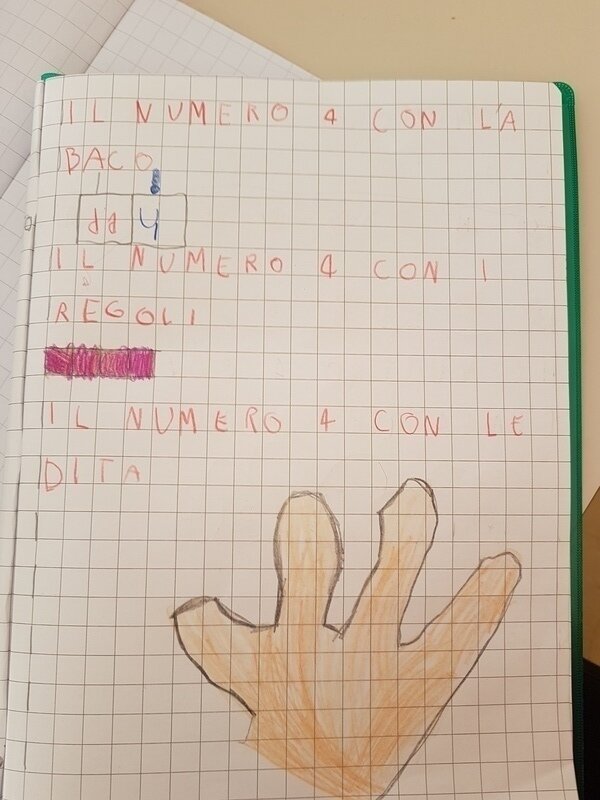 IL NUMERO 4 CON L'A
BACO
dd 4
IL NUMERO 4 CON I
REGOLI
IL NUMERO 4 CON LE
DITA